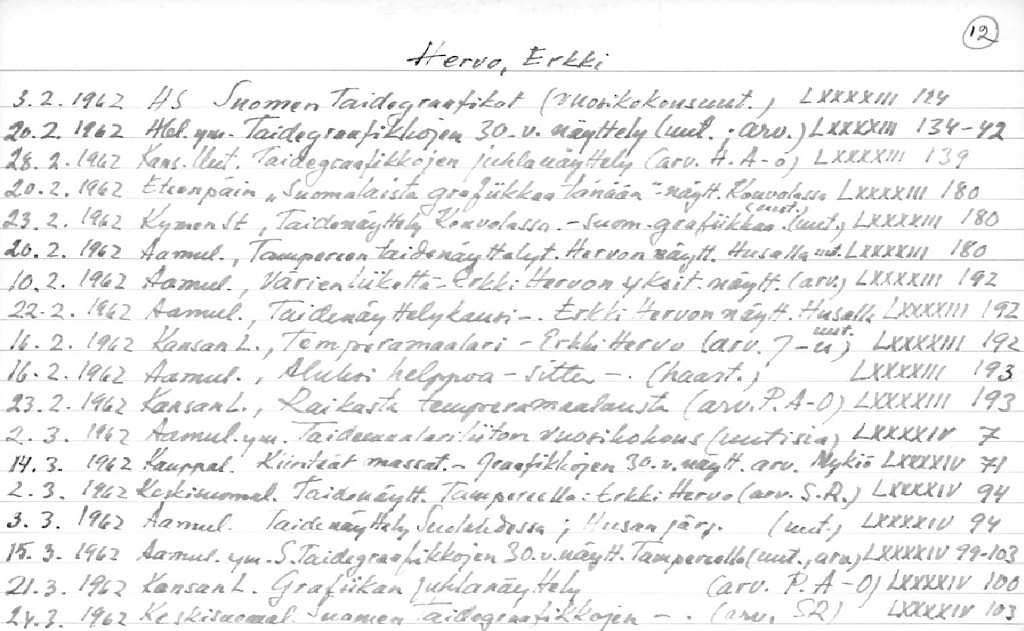 12
Hervo, Erkki
3.2. 1962 HS Suomen Taidegraafikot (vuosikokousuut.) LXXXXIII 124
20.2. 1962 Hbl. ym. Taidegraafikkojen 30-v. näyttely (uut. ; arv.) LXXXXIII 134-42
28.2. 1962 Kans. Uut. Taidegraafikkojen juhlanäyttely (arv. H. A-o) LXXXXIII 139
20.2. 1962 Eteenpäin „Suomalaista grafiikkaa tänään"-näytt. Kouvolassa LXXXXIII 180
(uut.)
23.2. 1962 KymenSt, Taidenäyttely Kouvolassa. - suom. grafiikkaa (uut.) LXXXXIII 180
20.2. 1962 Aamul., Tampereen taidenäyttelyt. Hervon näytt. Husalla uut. LXXXXIII 180
10.2. 1962 Aamul., Värien liikettä - Erkki Hervon yksit. näytt. (arv.) LXXXXIII 192
22.2. 1962 Aamul., Taidenäyttelykausi -. Erkki Hervon näytt. Husalla LXXXXIII 192
uut.
16.2. 1962 Kansan L., Temperamaalari - Erkki Hervo (arv. J-u) LXXXXIII 192
16.2. 1962 Aamul., Aluksi helppoa - sitten -. (haast.) LXXXXIII 193
23.2. 1962 Kansan L., Raikasta temperamaalausta (arv. P. A-O) LXXXXIII 193
2.3. 1962 Aamul. ym. Taidemaalariliiton vuosikokous (uutisia) LXXXXIV 7
14.3. 1962 Kauppal. Kiinteät massat. - Graafikkojen 30.v. näytt. arv. Mykiö LXXXXIV 71
2.3. 1962 Keskisuomal. Taidenäytt. Tampereella: Erkki Hervo (arv. S.R.) LXXXXIV 94
3.3. 1962 Aamul. Taidenäyttely Suolahdessa ; Husan järj. (uut.) LXXXXIV 94
15.3. 1962 Aamul. ym. S. Taidegraafikkojen 30.v. näytt. Tampereella (uut., arv.) LXXXXIV 99-103
21.3. 1962 Kansan L. Grafiikan juhlanäyttely (arv. P. A-O) LXXXXIV 100
24.3. 1962 Keskisuomal. Suomen Taidegraafikkojen -. (arv. SR) LXXXXIV 103